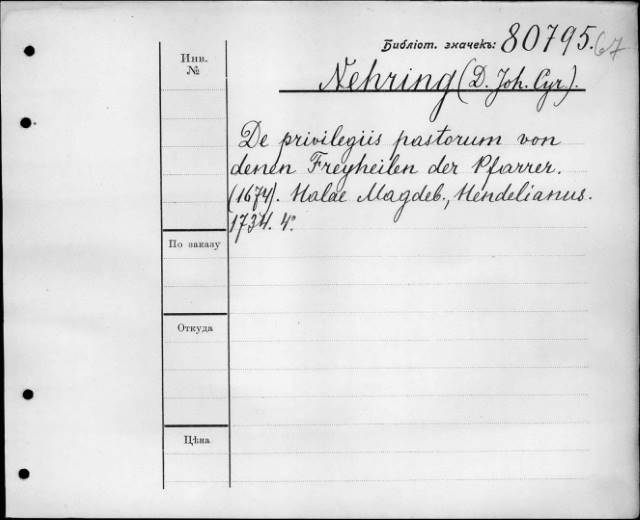 Библіот. значекъ: 80795.67
Инв.
№
Nehring (D. Joh. Cyr).
De privilegiis pastorum von
denen Freyheilen der Pfarrer.
(1674). Halae Magdeb., Hendelianus.
1734. 4°.
По заказу
Откуда
Цѣна